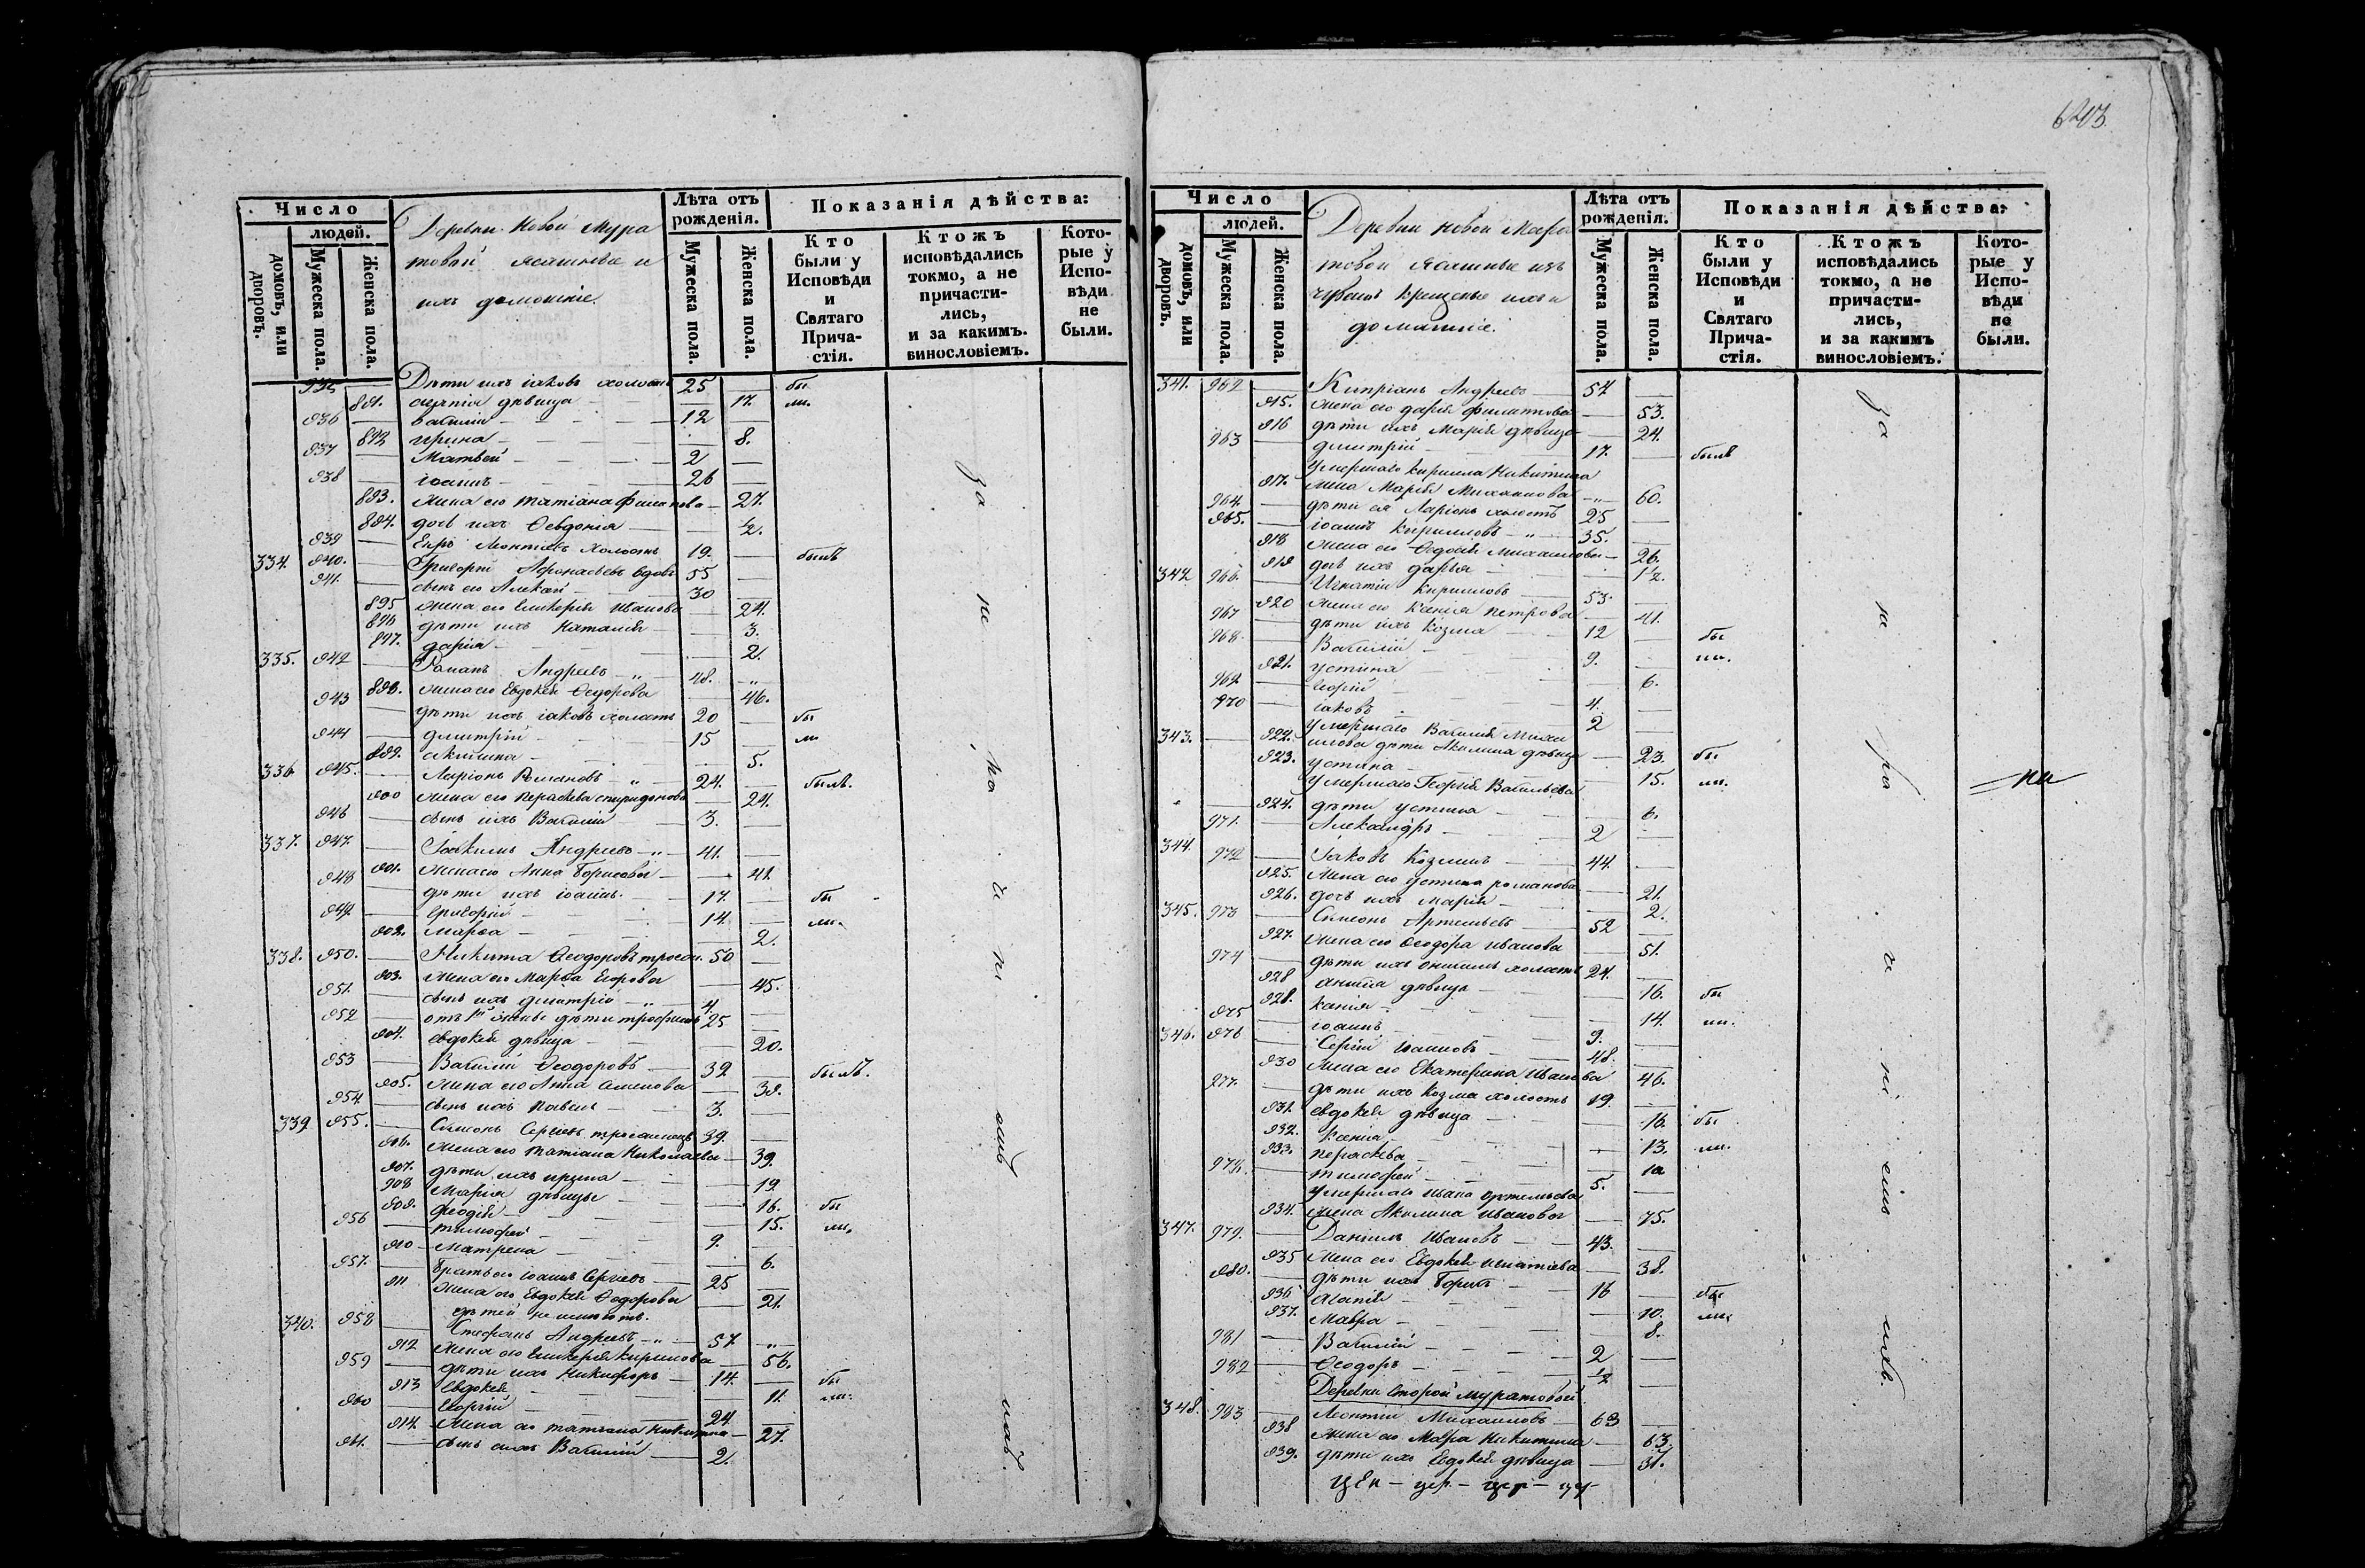 Число
людей.
домовъ, или дворовъ.
Мужеска пола.
Женска пола.
Деревни Новой Мура
товой ясашные и
ихъ домашніе.
Лѣта отъ рожденія.
Мужеска пола.
Женска пола.
Показанія дѣйства:
Кто были у Исповѣди и Святаго Прича-стія.
Ктожъ исповѣдались токмо, а не причасти-лись, и за какимъ. винословіемъ.
Кото-рые у Испо-вѣди не были.
935 — Дѣти ихъ іаковъ холостъ 25 — бы
891. дѣвица — 17. ли.
936 — Василій — 12 —
892 ирина — 8.
937 — Матвей — 2 —
938 — іоаннъ — 26 —
893. жена его татіана — 27.
894. дочь ихъ Ѳевдонія — ½.
939 — Леонтіевъ холостъ 19. — былъ
334. 940. — Григорій Афонасьевъ вдовъ 55 —
941. — сынъ его Алексй — 30 —
895 жена его Гликерія Иванова — 24.
896 дѣти ихъ Наталія — 3.
897. дарія — 2.
335. 942 — Романъ Андреевъ „ — 48. „
898. жена его Евдокія Ѳедорова — 46.
943 — дѣти ихъ іаковъ холостъ 20 — бы
944 — димитрій — 15 — ли
899. Акилина — 5.
336 945. — Ларіонъ Романовъ „ — 24. — былъ.
900 жена его Пераскева спиридонова — 24.
946 — сынъ ихъ Василій — 3. —
337. 947. — Іоакимъ Андреевъ „ — 41. —
901. жена его Анна Борисова — 41.
948 — дѣти ихъ іоаннъ. — 17. — бы
949. — григорій — 14. — ли.
902. Марѳа — 2.
338. 950. — Никита Ѳеодоровъ 50 —
903. жена его Марѳа Егорова — 45.
951. — сынъ ихъ димитрій „ — 4. —
952 — отъ 1й жены дѣти трофимъ 25 —
904. евдокія дѣвица — 20.
953 — Василій Ѳеодоровъ — 39 — былъ.
905. жена его Анна Семенова — 38.
954 — сынъ ихъ Павелъ — 3. —
339 955. — Симеонъ Сергіевъ 39. —
906. жена его татіана Николаева — 39.
907. дѣти ихъ ирина — 19
908 Марія дѣвицы — 16. бы
909. феодія — 15. ли.
956 — тимофей — 9. —
910 — Матрена — 6.
957. — братъ его іоаннъ Сергіевъ — 25 —
911 жена его Евдокія Ѳедорова — 21.
дѣтей не имеютъ.
340. 958 — Стефанъ Андреевъ „ — 57. „
912 жена его Гликерія Кирилова — 56.
959 — дѣти ихъ Никифоръ — 14. — бы
913 Евдокія — 11. ли.
960 — Георгій — 24 —
914. жена его татьяна Никитина — 27.
961. — сынъ ихъ Василій — 2. —
за не по че ні емъ
Число
людей.
домовъ, или дворовъ.
Мужеска пола.
Женска пола.
Деревни новой Мура
товой ясашные изъ
чувашъ крещеные ихъ и
домашніе.
Лѣта отъ рожденія.
Мужеска пола.
Женска пола.
Показанія дѣйства:
Кто были у Исповѣди и Святаго Прича-стія.
Ктожъ исповѣдались токмо, а не причасти-лись, и за какимъ винословіемъ.
Кото-рые у Испо-вѣди не были.
341. 962 — Кипріанъ Андреевъ — 54 —
915. жена его дарія филиппова — 53.
916 дѣти ихъ Марія дѣвица — 24.
963 — димитрій — 17. — былъ
умершаго кирилла Никитина
917. жена Марія Михаилова „ — 60.
964. — дѣти ея Ларіонъ холостъ 25 —
965. — іоаннъ Кирилловъ „ — 35. —
918 жена его Ѳедосія Михаилова — 26.
919 дочь ихъ дарья — ½.
342 966. — Игнатій Кириловъ — 53. —
920 жена его Ксенія Петрова — 41.
967 — дѣти ихъ Козма — 12 — бы
968. — Василій — 9. — ли.
921. устина — 6.
969 — Георгій — 4. —
970 — іаковъ — 2 —
умершаго Василія Миха
343. — 922. илова дѣти Акилина дѣвица — 23. бы
923. устина — 15. ли.
умершаго Георгія Васильева
924. дѣти устинья — 6.
971. — Александръ — 2 —
344. 972 — Іаковъ Козминъ — 44. —
925. жена его устина романова — 21.
926. дочь ихъ Марія — 2.
345. 973 — Симеонъ Артемьевъ — 52 —
927. жена его Ѳеодора иванова — 51.
974 — дѣти ихъ холостъ 24. —
928 дѣвица — 16. бы
928. ксенія — 14. ли.
975 — іоаннъ — 9. —
346. 976 — Сергій Іоанновъ — 48. —
930 жена его Екатерина Иванова — 46.
977. — дѣти ихъ Козма холостъ 19 —
931. евдокія дѣвица — 16. бы
932. Ксенія — 13. ли.
933. Пераскева — 10
978. — тимофей — 5. —
умершаго ивана артемьева
934. жена Акилина иванова — 75.
347. 979. — Даніилъ Ивановъ — 43. —
935 жена его Евдокія игнатіева — 38.
980. — дѣти ихъ Борисъ — 16 — бы
936 Агапія — 10. ли.
937. Мавра — 8.
981 — Василій — 2 —
982 — Ѳеодоръ — ½ —
Деревни Старой муратовой
348. 983 — Леонтій Михаиловъ — 63 —
938 жена его Мавра Никитина — 63.
939. дѣти ихъ Евдокія дѣвица — 31.
за не ра че ні емъ